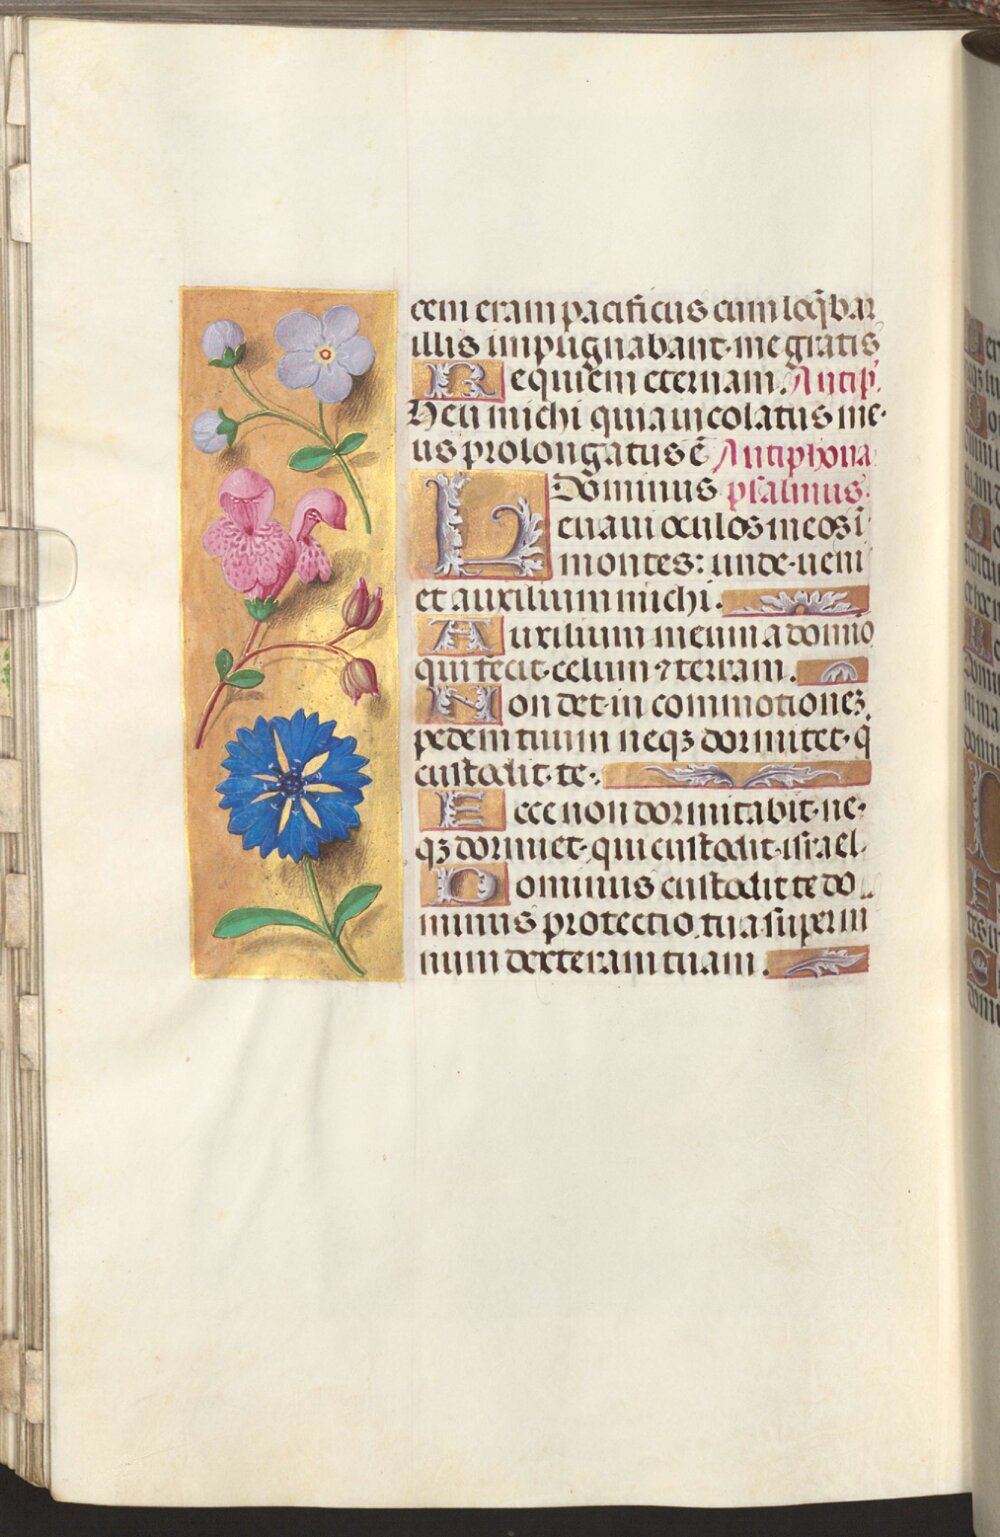 cem eram pacificus cum loq̄bar
illis impugnabant me gratis
Requiem eternam. Antip.
Heu michi quia incolatus me-
us prolongatus ē Antiphona
Dominus psalmus.
Leuaui oculos meos ī
montes: unde ueni
et auxilium michi.
Auxilium meum a domino
qui fecit celum ⁊ terram.
Non det in commotionez
pedem tuum neqz dormitet q̄
custodit te.
Ecce non dormitabit ne-
qz dormiet qui custodit israel.
Dominus custodit te do
minus protectio tua super m
num dexteram tuam.